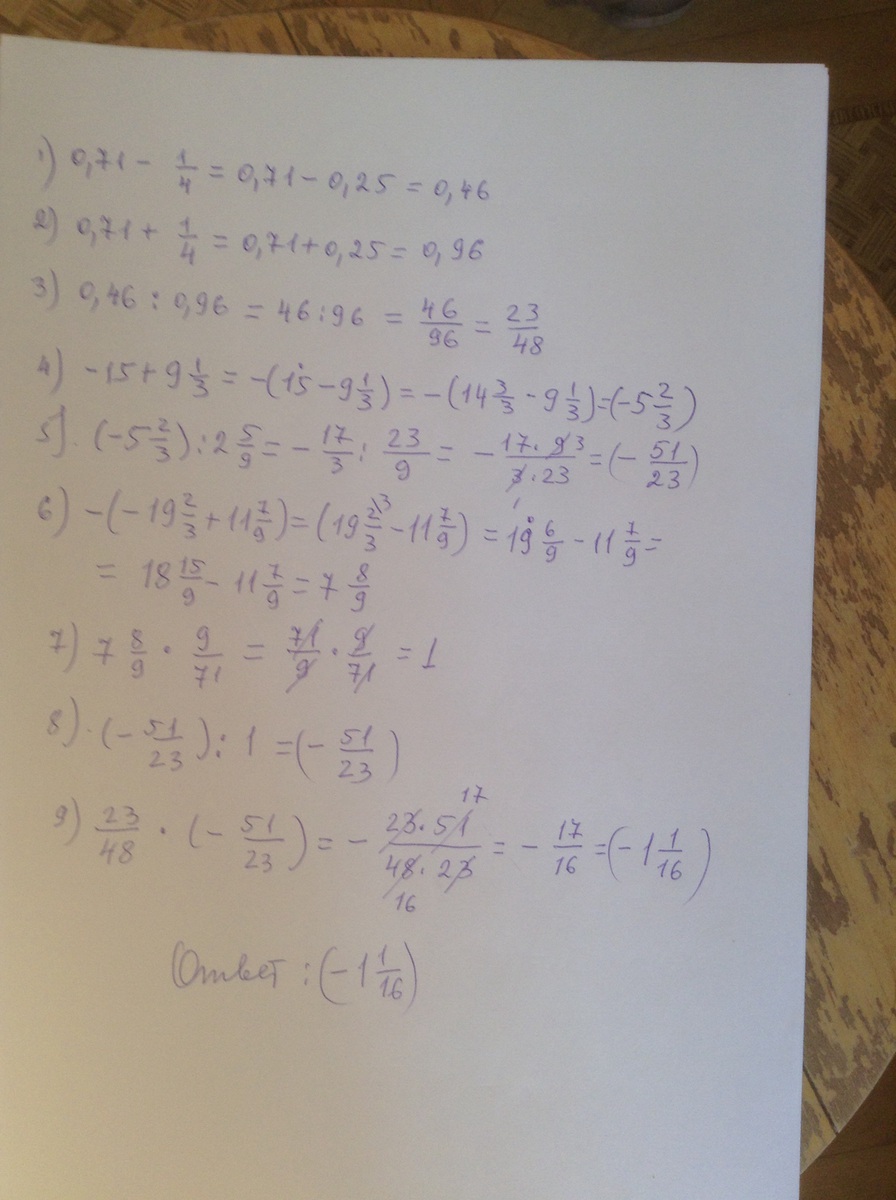 1) 0,71 - 1/4 = 0,71 - 0,25 = 0,46
2) 0,71 + 1/4 = 0,71 + 0,25 = 0,96
3) 0,46 : 0,96 = 46 : 96 = 46/96 = 23/48
4) -15 + 9 1/3 = -(15 - 9 1/3) = -(14 3/3 - 9 1/3) = (-5 2/3)
5) (-5 2/3) : 2 5/9 = - 17/3 : 23/9 = - 17 · 9 3/3 · 23 1 = (- 51/23)
6) -(-19 2/3 + 11 7/9) = (19 2\3/3 - 11 7/9) = 19 6/9 - 11 7/9 =
= 18 15/9 - 11 7/9 = 7 8/9
7) 7 8/9 · 9/71 = 71/9 · 9/71 = 1
8) (- 51/23) : 1 = (- 51/23)
9) 23/48 · (- 51/23) = - 23 · 51 17/48 · 23 16 = - 17/16 = (-1 1/16)
Ответ : (-1 1/16)